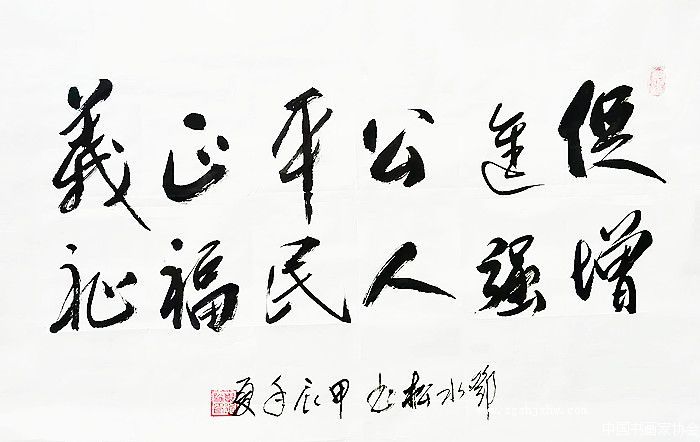 促進公平正義
增强人民福祉
水松书甲辰年夏
中国书画家协会